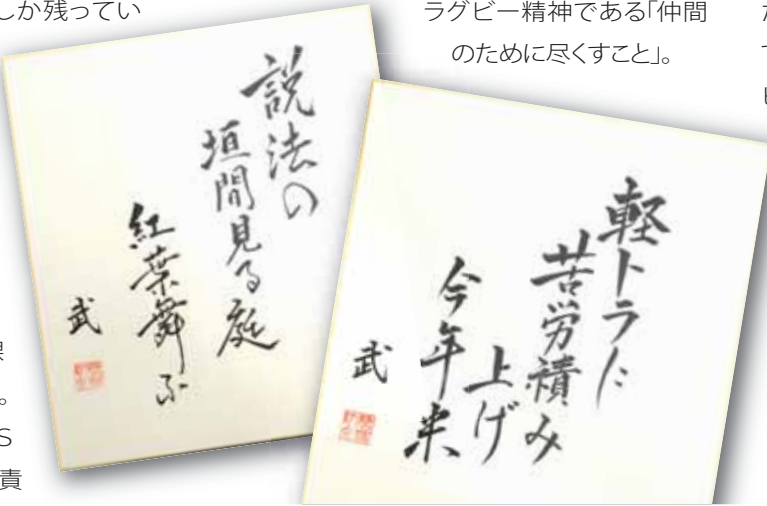 しか残ってい
ラグビー精神である「仲間
のために尽くすこと」。
説法の
垣間見る庭
紅葉舞ふ
武
軽トラに
苦労積み
上げ
今年米
武
。
S
責